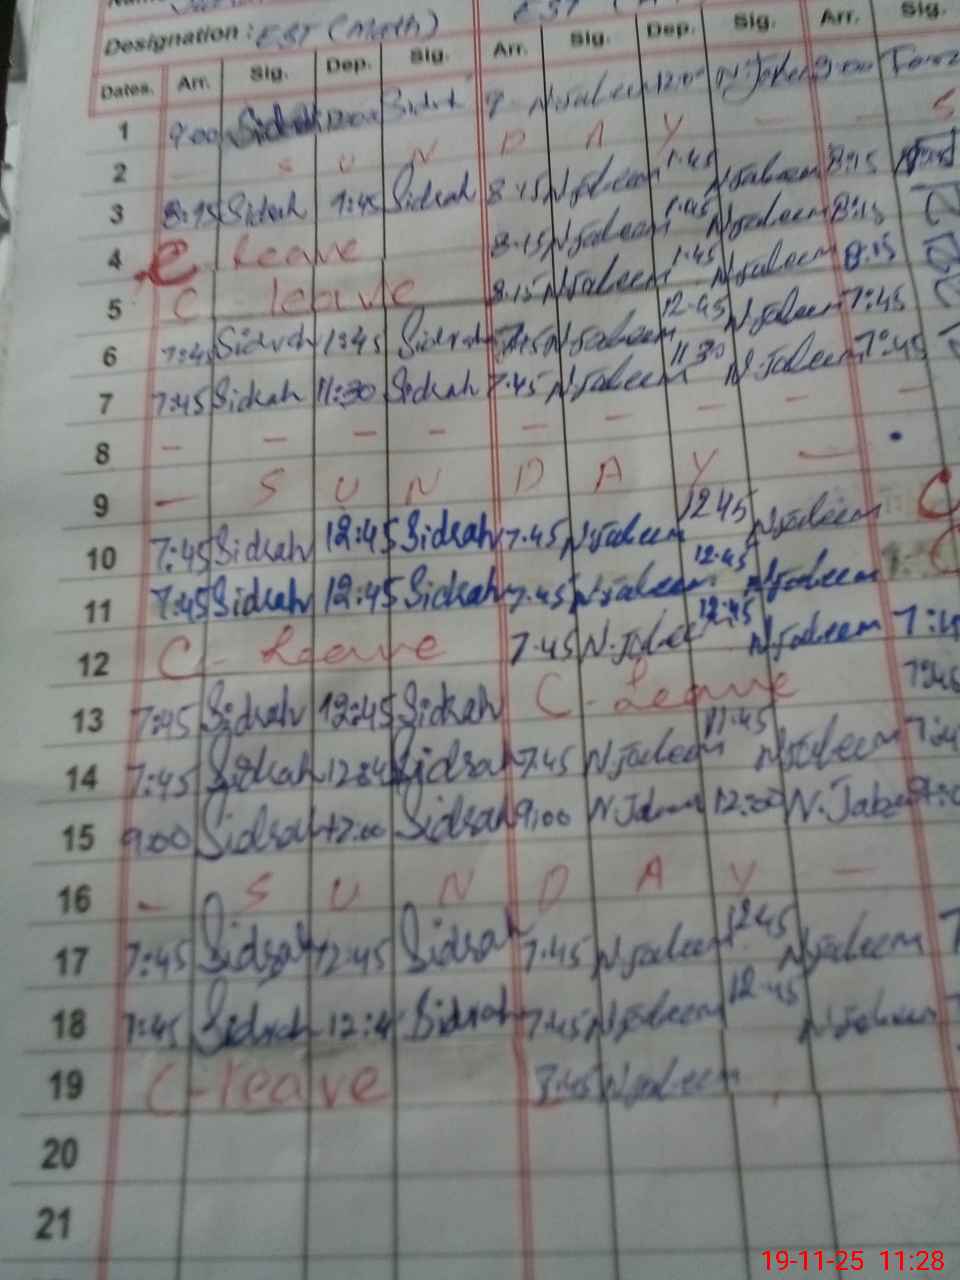 Designation : EST (Math) EST
Dates. Arr. Sig. Dep. Sig. Arr. Sig. Dep. Sig. Arr. Sig.
1 9:00 Sidrah 12:00 Sidrah 9 N Jabeen 12:00 N.Jabeen 9:00
2 - S U N D A Y - - S
3 8:15 Sidrah 1:45 Sidrah 8.15 N Jabeen 1.45 N Jabeen 8:15
4 C leave 8.15 N Jabeen 1.45 N Jabeen 8:15
5 C leave 8.15 N Jabeen 1.45 N Jabeen 8:15
6 7:45 Sidrah 1:45 Sidrah 7:45 N Jabeen 12.45 N Jabeen 7:45
7 7:45 Sidrah 11:30 Sidrah 7.45 N Jabeen 11.30 N.Jabeen 7:45
8 - - - - - - - - - -
9 - S U N D A Y -
10 7:45 Sidrah 12:45 Sidrah 7.45 N Jabeen 12 45 N Jabeen C
11 7:45 Sidrah 12:45 Sidrah 7.45 N Jabeen 12.45 N Jabeen C
12 C - Leave 7.45 N.Jabee 12:45 N Jabeen 7:4
13 7:45 Sidrah 12:45 Sidrah C - Leave 7:45
14 7:45 Sidrah 12:4 Sidrah 7.45 N Jabeen 11.45 N Jabeen 7:4
15 9:00 Sidrah 12:00 Sidrah 9:00 N Jabeen 12:00 N. Jabe
16 - S U N D A Y -
17 7:45 Sidrah 12:45 Sidrah 7.45 N Jabeen 12 45 N Jabeen 7
18 7:45 Sidrah 12:4 Sidrah 7.45 N Jabeen 12.45 N Jabeen
19 C - leave 7.45 N Jabeen
20
21
19-11-25 11:28